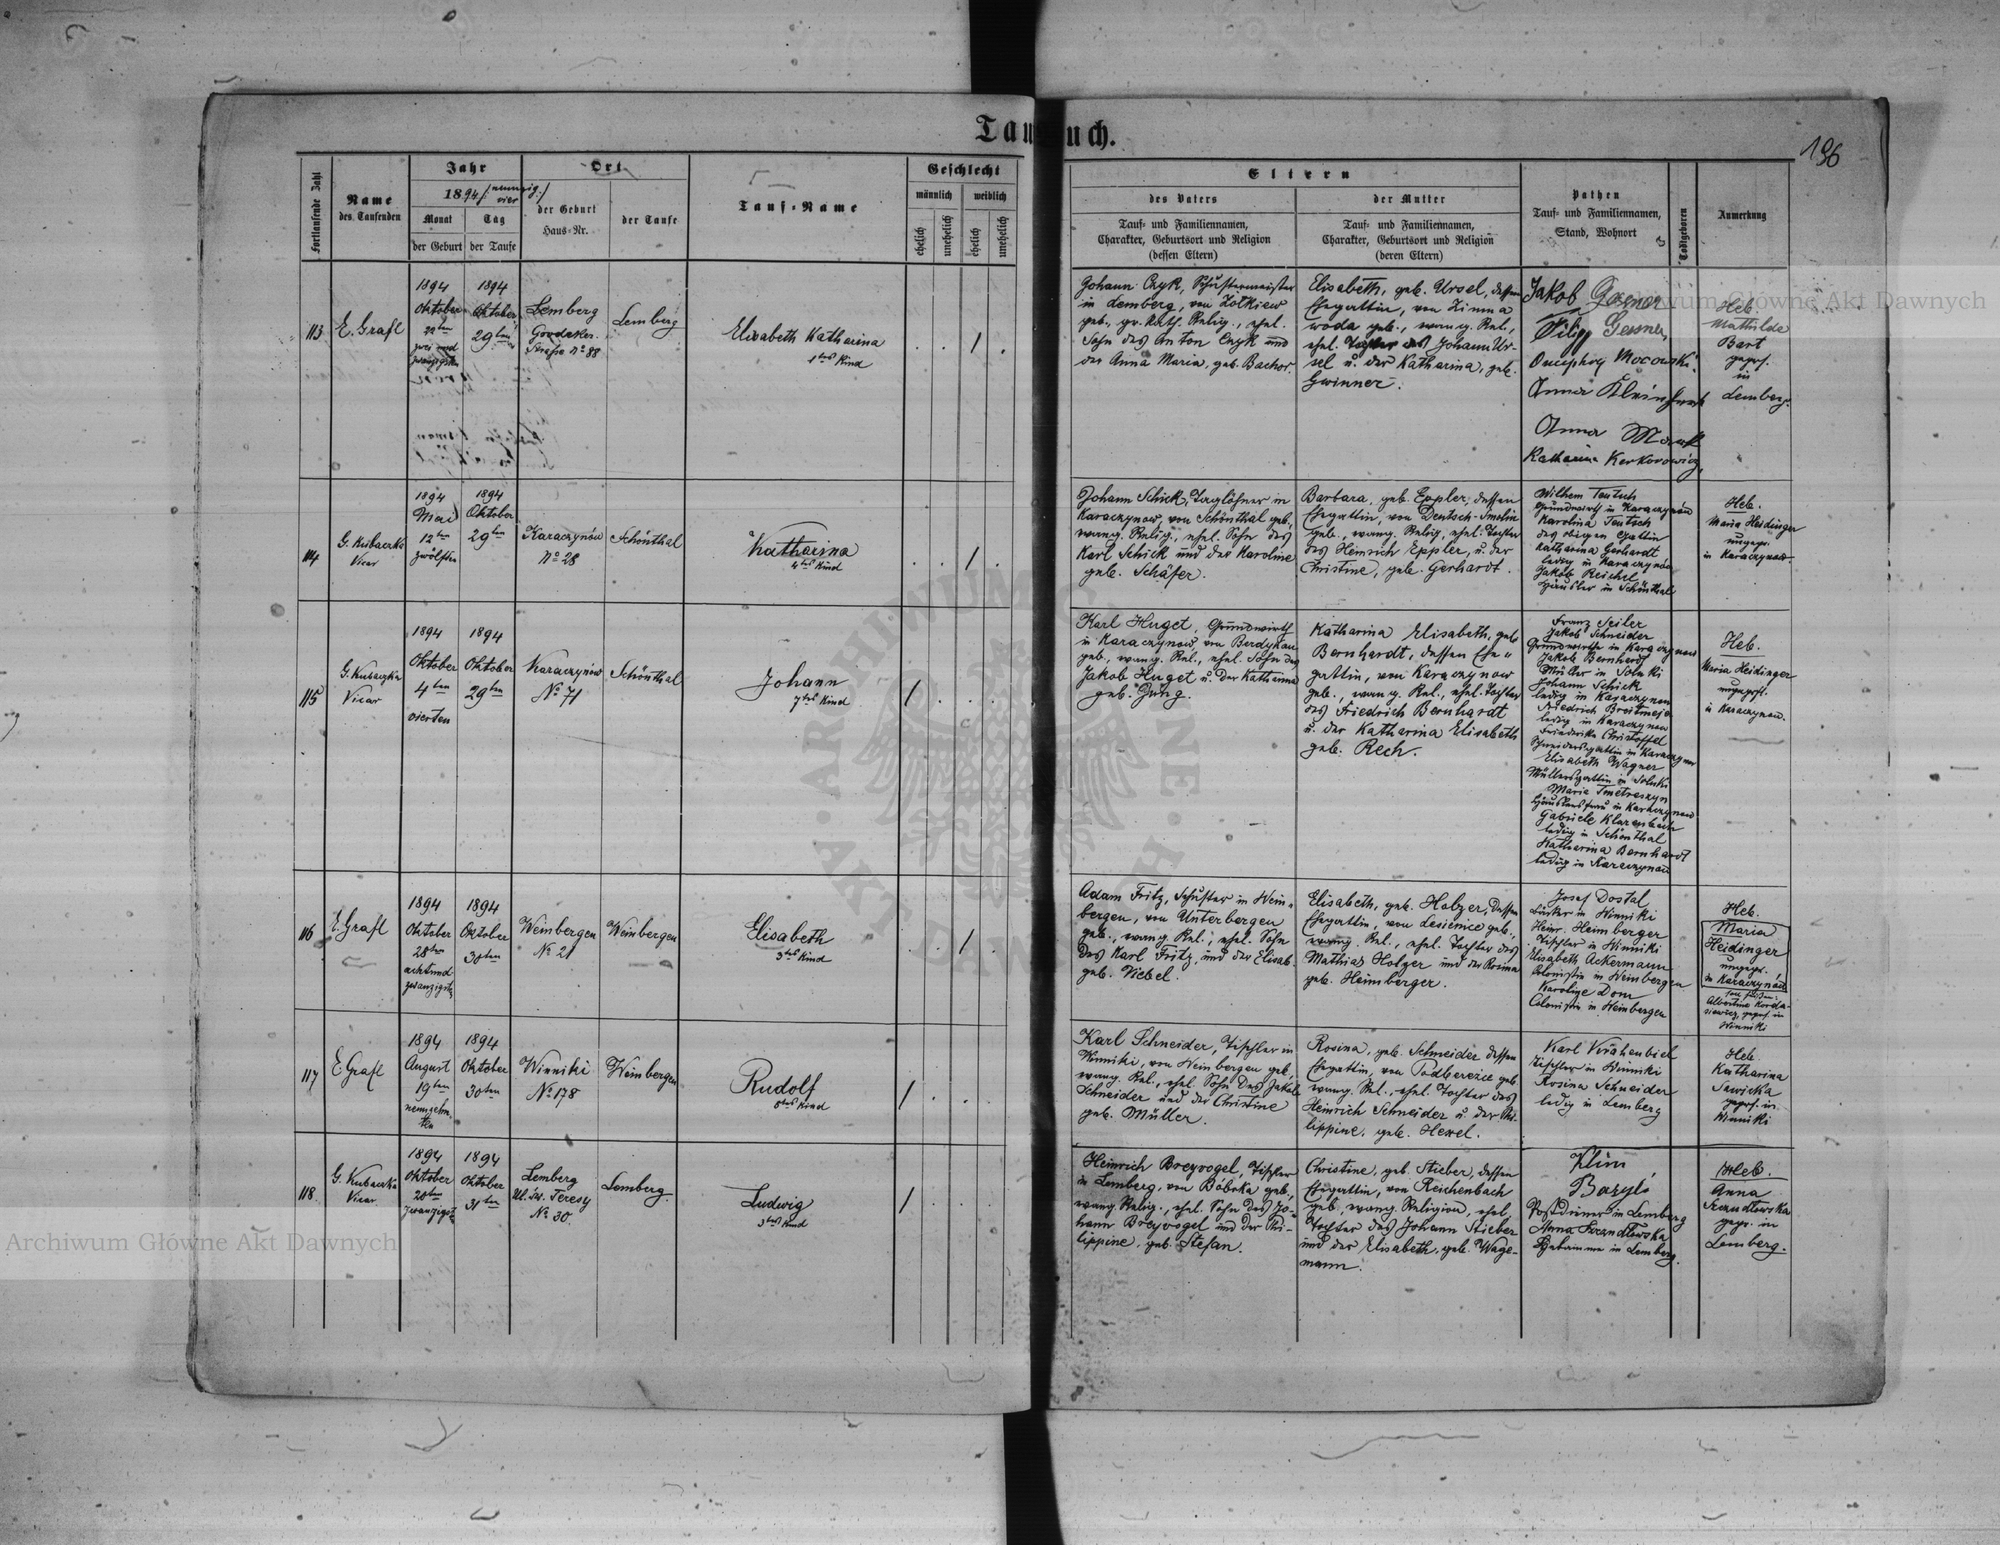 Taufbuch.
196
Fortlaufende Zahl
Name
des Taufenden
Jahr
1894 /: neunzig vier :/
Monat
Tag
der Geburt
der Taufe
Ort
der Geburt
Haus-Nr.
der Taufe
Tauf-Name
Geschlecht
männlich
weiblich
ehelich
unehelich
ehelich
unehelich
Eltern
des Vaters
Tauf- und Familiennamen,
Charakter, Geburtsort und Religion
(dessen Eltern)
der Mutter
Tauf- und Familiennamen,
Charakter, Geburtsort und Religion
(deren Eltern)
Pathen
Tauf- und Familiennamen,
Stand, Wohnort
Todtgeboren
Anmerkung
113
E. Grafl
1894
Oktober
22ten
zwei und
zwanzigsten
1894
Oktober
29ten
Lemberg
Grodeker-
Strasse No 88
Lemberg
Elisabeth Katharina
1tes Kind
Johann Czyk, Schustermeister
in Lemberg, von Zolkiew
geb., gr. kath. Relig., ehel.
Sohn des Anton Czyk und
der Anna Maria, geb. Bachor.
Elisabeth, geb. Ursel, dessen
Ehegattin, von Zimna
woda geb., evang. Rel.,
ehel. Tochter des Johann Ur-
sel u. der Katharina, geb.
Gwinner.
Jakob Gesner
Filip Gesner
Onephry Mocowski
Anna
Anna
Katharina Kerkorowicz
Heb.
Mathilde
Bart
geprf.
in
Lemberg.
114
G. Kubaczka
Vicar
1894
Mai
12ten
zwölften
1894
Oktober
29ten
Karaczynów
No 28
Schönthal
Katharina
4tes Kind
Johann Schick, Taglöhner in
Karaczynow, von Schönthal geb.,
evang. Relig., ehel. Sohn des
Karl Schick und der Karoline
geb. Schäfer.
Barbara, geb. Eppler, dessen
Ehegattin, von Deutsch-Smolin
geb., evang. Relig., ehel. Tochter
des Heinrich Eppler, u. der
Christine, geb. Gerhardt.
Wilhem Teutsch
Grundwirth in Karaczynów
Karolina Teutsch
des obigen Gattin
Katharina Gerhardt,
ledig in Karaczynów
Jakob Reichel
Häusler in Schönthal
Heb.
Maria Heidinger
ungepr.
in Karaczynow.
115
G. Kubaczka
Vicar
1894
Oktober
4ten
vierten
1894
Oktober
29ten
Karaczynów
No 71
Schönthal
Johann
7tes Kind
Karl Huget, Grundwirth
in Karaczynow, von Berdykau
geb., evang. Rel., ehel. Sohn des
Jakob Huget u. der Katharina
geb. Jung.
Katharina Elisabeth, geb.
Bernhardt, dessen Ehe-
gattin, von Karaczynow
geb., evang. Rel., ehel. Tochter
des Friedrich Bernhardt
u. der Katharina Elisabeth
geb. Rech.
Franz Seiler
Jakob Schneider
Grundwirthe in Karaczynow
Jakob Bernhardt
Müller in Solnki
Johann Schick
ledig in Karaczynow
Friedrich Breitmeje
ledig in Karaczynow
Friederike Christoffel
Schneidersgattin in Karaczynow
Elisabeth Wagner
Müllersgattin in Solnki
Maria
Häuslersfrau in Karaczynow
Gabriele Klarenbach
ledig in Schönthal
Katharina Bernhardt
ledig in Karaczynow
Heb.
Maria Heidinger
ungeprft.
in Karaczynow.
116
E. Grafl
1894
Oktober
28ten
achtund
zwanzigste
1894
Oktober
30ten
Weinbergen
No 21
Weinbergen
Elisabeth
3tes Kind
Adam Fritz, Schuster in Wein-
bergen, von Unterbergen
geb., evang. Rel., ehel. Sohn
des Karl Fritz, und der Elisab.
geb. Niebel.
Elisabeth, geb. Holzer, dessen
Ehegattin, von Lesienice geb.,
evang. Rel., ehel. Tochter des
Mathias Holzer und der Rosina
geb. Heimberger.
Josef Dostal
Bäcker in Winniki
Heinr. Heimberger
Tischler in Winniki
Elisabeth Ackermann
Colonistin in Weinbergen
Karoline Dom
Colonistin in Weinbergen
Heb.
Maria
Heidinger
ungepr.
in Karaczynów
soll heißen:
Albertine Korda-
siewicz, geprf. in
Winniki
117
E. Grafl
1894
August
19ten
neunzehn-
ten
1894
Oktober
30ten
Winniki
No 178
Weinbergen
Rudolf
8tes Kind
Karl Schneider, Tischler in
Winniki, von Weinbergen geb.,
evang. Rel., ehel. Sohn des Jakob
Schneider und der Christine
geb. Müller.
Rosina, geb. Schneider dessen
Ehegattin, von Podberezce geb.
evang. Rel., ehel. Tochter des
Heinrich Schneider u. der Phi-
lippine, geb. Hewel.
Karl Krähenbiel
Tischler in Winniki
Rosina Schneider
ledig in Lemberg
Heb.
Katharina
Sawicka
geprf. in
Winniki
118.
G. Kubaczka
Vicar
1894
Oktober
20ten
zwanzigste
1894
Oktober
31ten
Lemberg
Ul. św. Teresy
No 30.
Lemberg.
Ludwig
3tes Kind
Heinrich Breyvogel, Tischler
in Lemberg, von Bóbrka geb.,
evang. Relig., ehel. Sohn des Jo-
hann Breyvogel und der Phi-
lippine, geb. Stefan.
Christine, geb. Stieber, dessen
Ehegattin, von Reichenbach
geb., evang. Religion, ehel.
Tochter des Johann Stieber
und der Elisabeth, geb. Wage-
mann.
Klim
Bazyli
Postdiener in Lemberg
Anna Szandłowska
Hebamme in Lemberg.
Heb.
Anna
Szandłowska
gepr. in
Lemberg.
Archiwum Główne Akt Dawnych
Archiwum Główne Akt Dawnych
ARCHIWUM GŁÓWNE AKT DAWNYCH